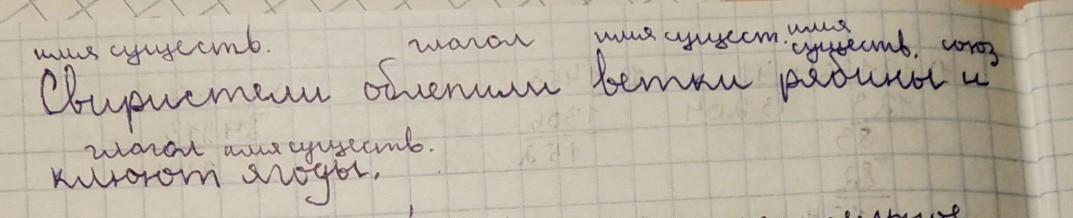 имя существ. глагол имя сущест. имя существ. союз
Свиристели облепили ветки рябины и
глагол имя существ.
клюют ягоды.